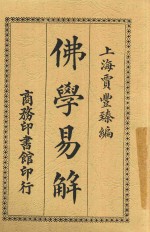 上海賈豐臻編
佛學易解
商務印書館印行